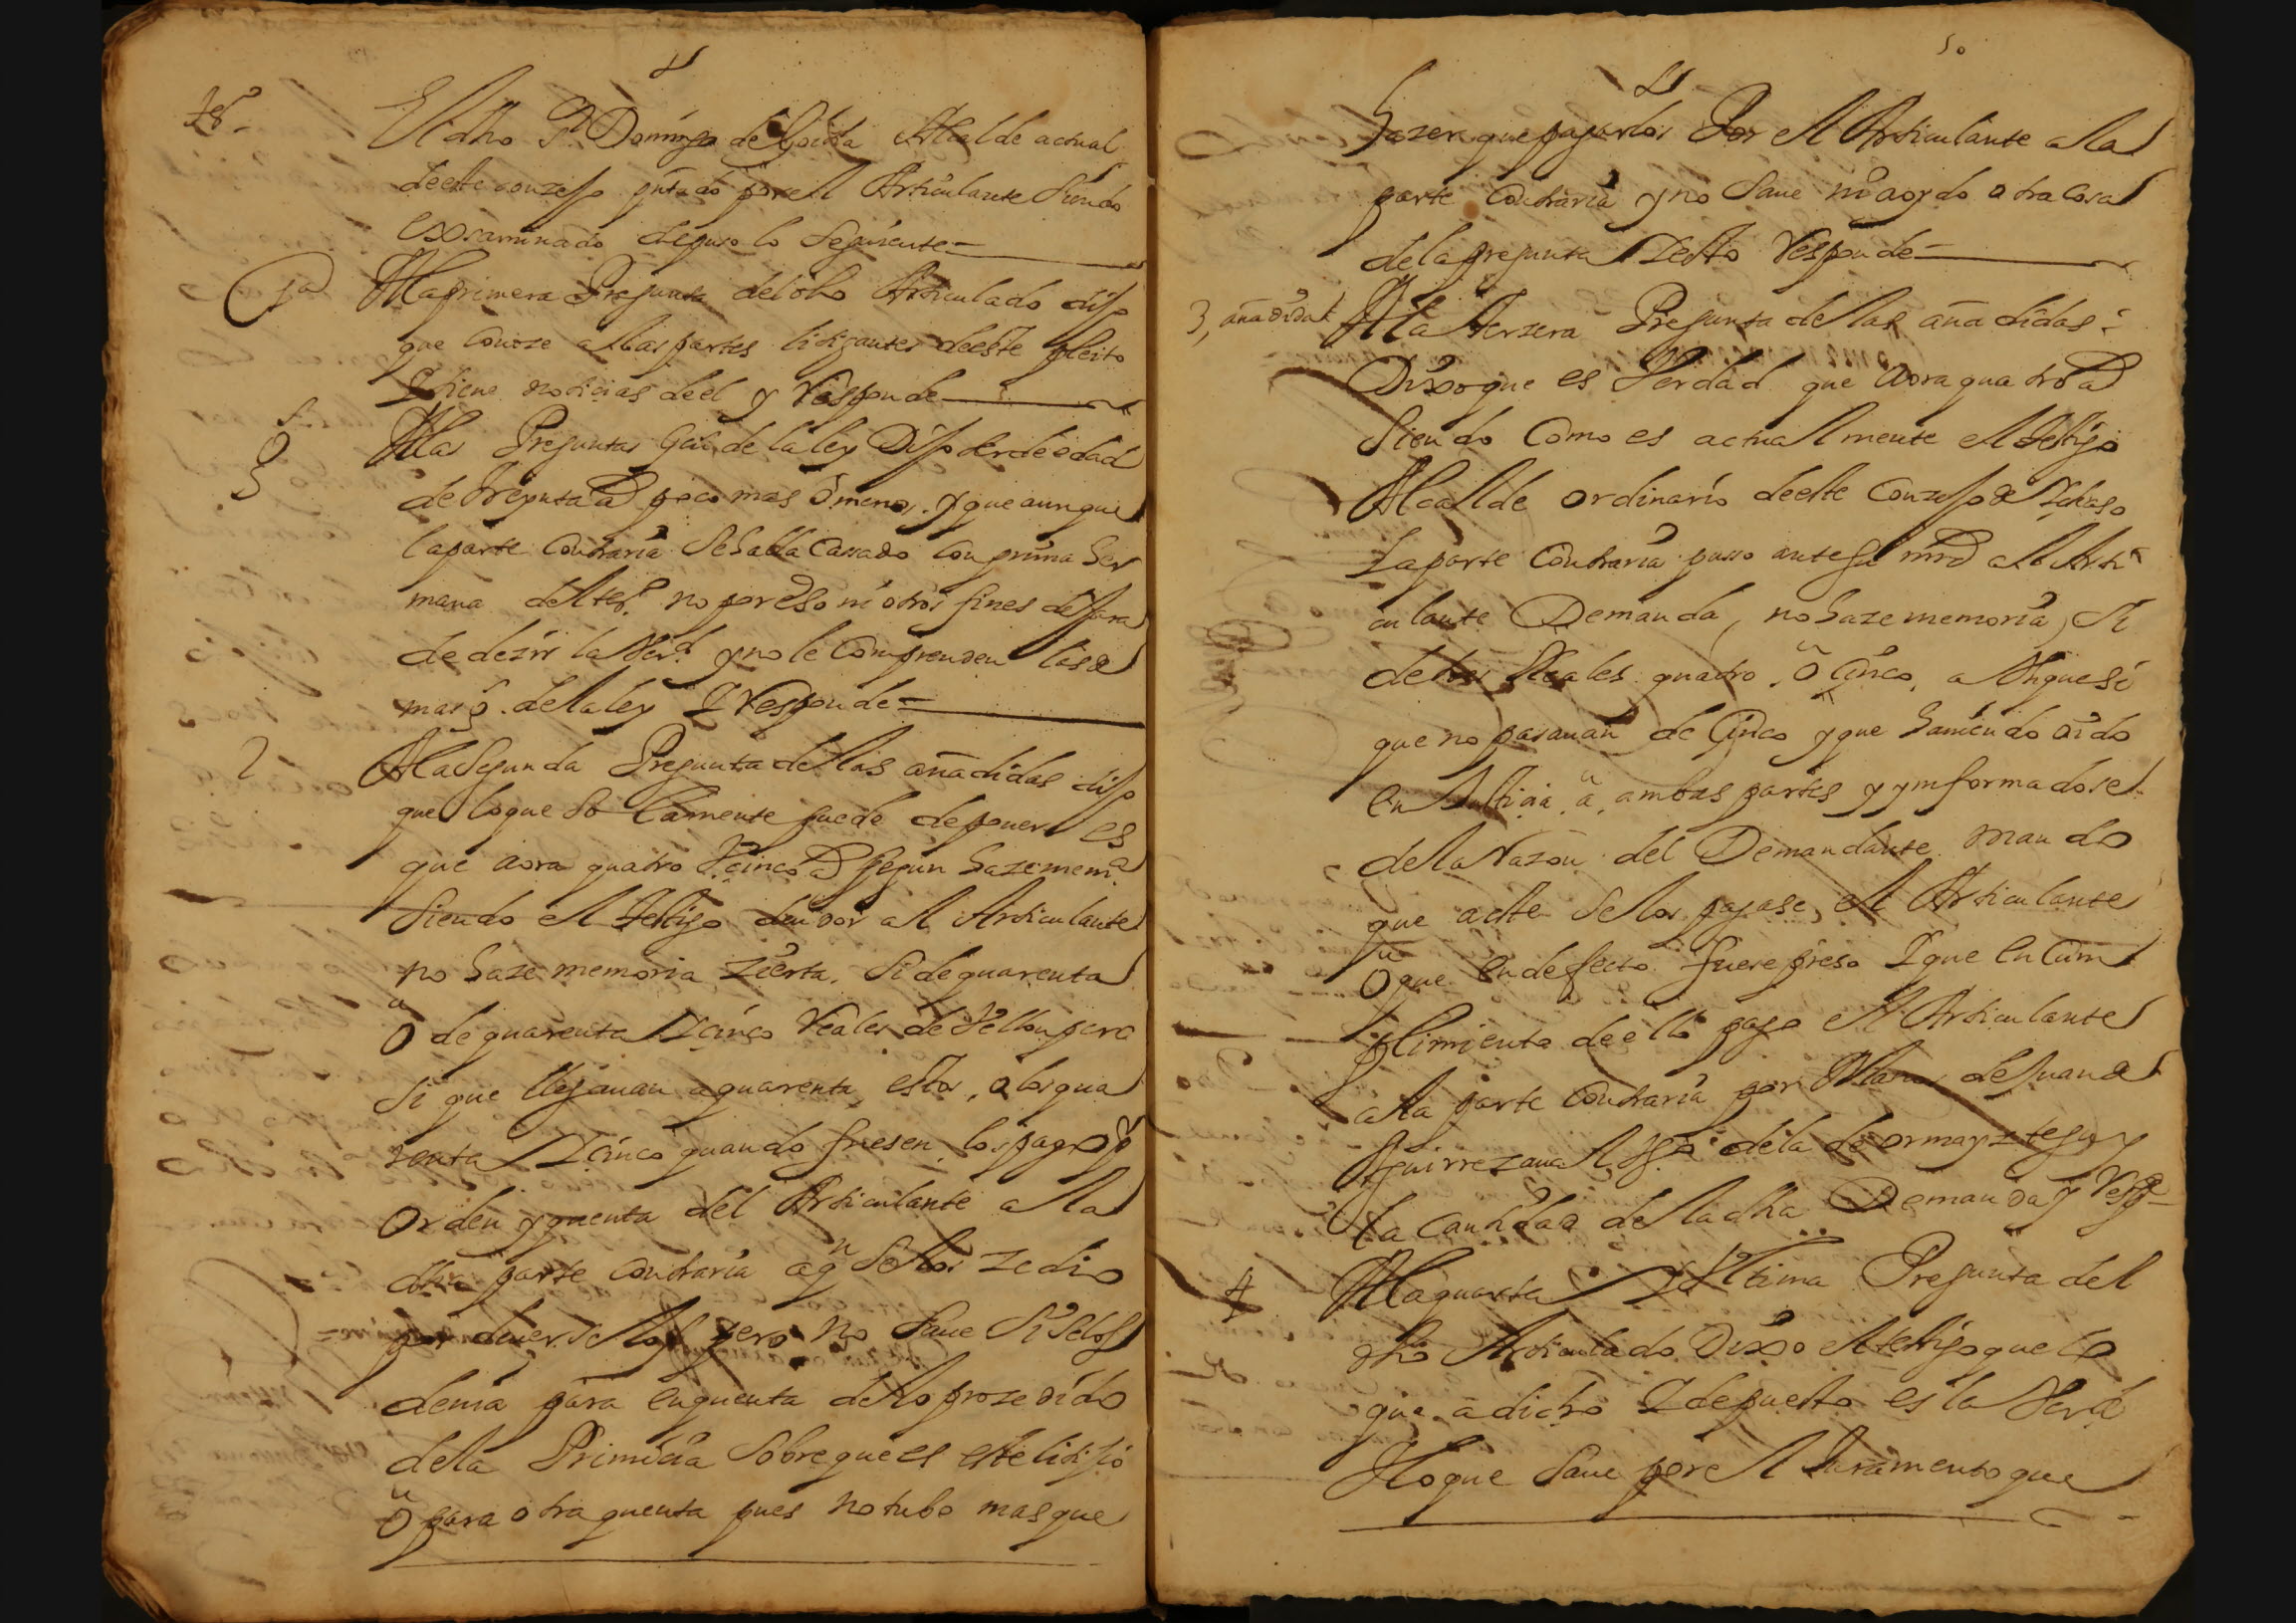 tesº
El dho Sr Domingo de Goitia Alcalde actual
de este conzejo pntado por el Articulante siendo
exsaminado depuso lo seguiente =
1ª
A la primera Pregunta del dho Articulado dijo
que conoze a las partes litigantes de este pleito
Y tiene noticias de el y Responde
A las Preguntas Gēs de la ley Dijo ser de edad
de treynta as poco mas ô menos. y que aunque
la parte contraria se halla cassado con prima her
mana del tesº no por eso ni otros fines dejara
de dezir la Verd. y no le comprenden las de
mas g. de la ley Y Responde =
2
A la Segunda Pregunta de las añadidas dijo
que lo que solamente puede deponer es
que aora quatro V cinco as segun haze memª
siendo el testigo deudor al Articulante
no haze memoria zierta. si de quarenta
ô de quarenta Y cinco Reales de Vellon pero
si que llegauan a quarenta, estos, o los qua
renta Y cinco quando fuesen, los pago pr
orden y quenta del Articulante a la
dha parte contraria a qn se los zedio
por deuerselos pero no saue si se los
deuia para en quenta de lo prozedido
de la Primicia sobre que es este litigio
ô para otra quenta pues no tubo mas que
50
hazer que pagarlos Por el Articulante a la
parte contraria y no saue ni a oydo otra cosa
de la pregunta Y esto Responde =
3, añadida
A la terzera Pregunta de las añadidas
Dixo que es Verdad que aora quatro as
siendo como es actualmente el testigo
Alcalde ordinario de este Conzejo de
La parte contraria puso ante su mrd al Arti
culante Demanda, no haze memoria, si
de tres Reales quatro, ô cinco, aunque si
que no pasauan de cinco y que hauiendo oido
en Justicia â, ambas partes y ynformadose
de la Razon del Demandante mando
que a este se los pagase, el Articulante
O que en defecto fuere preso Y que en cum
plimiento de ello pago el Articulante
a la parte contraria por Mano de Juan de
Aguirrezaual Vº de la de ormayztegui
la cantidad de la dha Demanda y Respe =
4
A la quarta Y Vltima Pregunta del
dho Articulado Dixo el testigo que lo
que a dicho Y depuesto es la Verd
Y lo que saue por el Juramento que